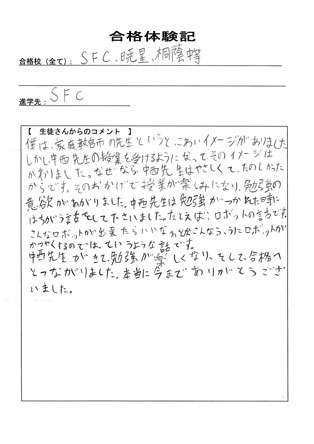 合格体験記
合格校（全て）： SFC、暁星、桐蔭等
進学先： SFC
【 生徒さんからのコメント 】
僕は、家庭教師の先生というと、こわいイメージがありました。
しかし中西先生の授業を受けるようになって、そのイメージは
かわりました。なぜなら中西先生はやさしくて、たのしかった
からです。そのおかげで授業が楽しみになり、勉強の
意欲があがりました。中西先生は勉強がつかれた時に
はちがう話をして下さいました。たとえば、ロボットの話です。
こんなロボットが出来たらいいな
かつやくするのでは、ていうような話です。
中西先生がきて、勉強が楽しくなり、そして、合格へ
とつながりました。本当に今までありがとうござ
いました。